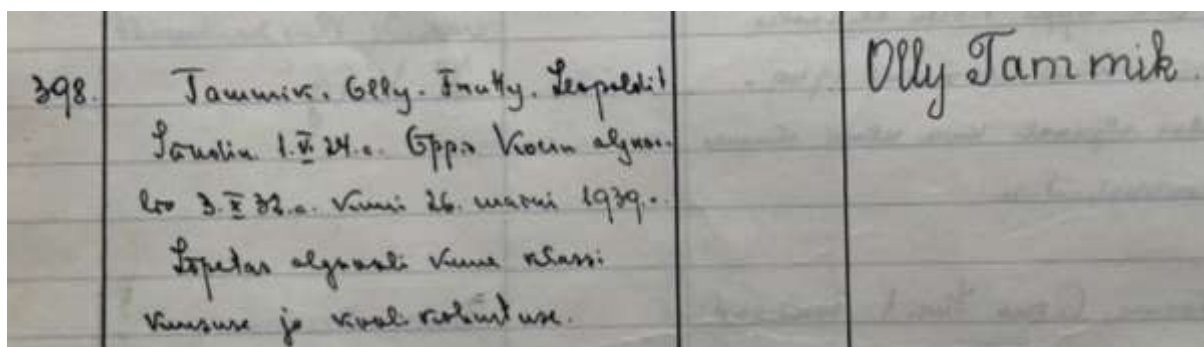 398. Tammik. Olly-Frutty. Leopoldi t. Olly Tammik.
Sündin 1.VI 24.a. Õppis Kolin algkoo-
lis 3.X 32.a. kuni 26. maini 1939.a.
Lõpetas algkooli kuue klassi
kursuse ja koolikohustuse.